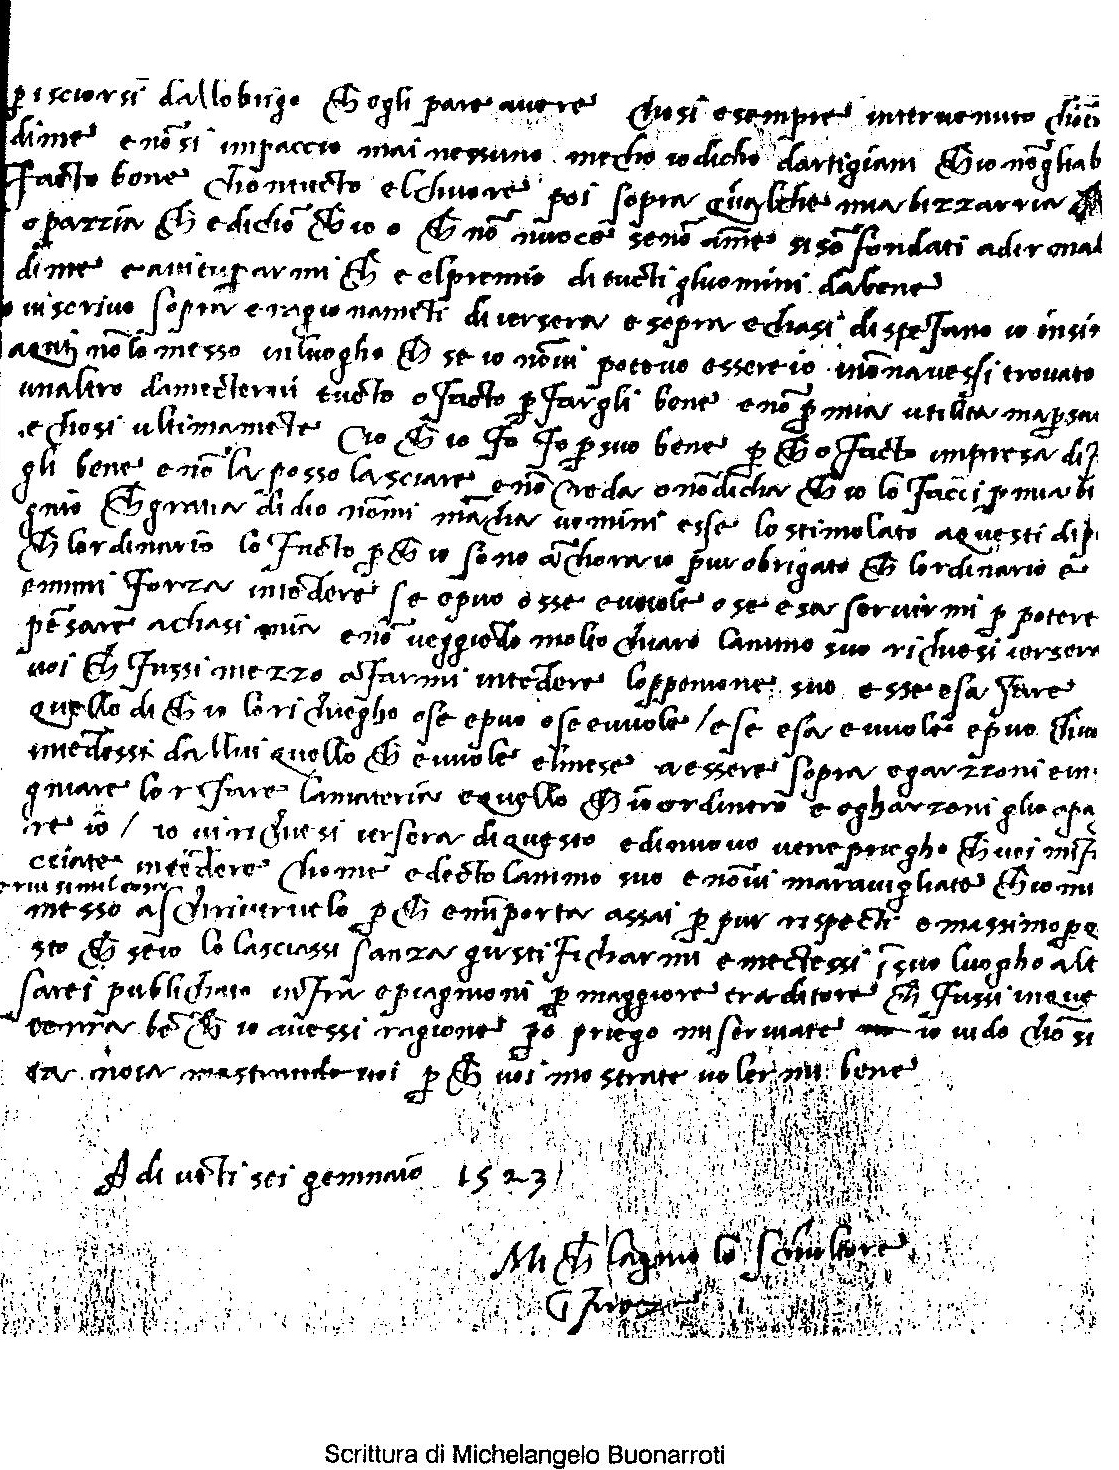 p isciorsi dallobrigo Ch ogli pare avere chosi e sempre intervenuto
dime e nō si impaccio mai nessuno mecho io dicho dartigiani Ch io nō
facto bene chontucto el chuore poi sopra qualche mia bizzarria
o pazzia Ch e dichō Ch io o Ch nō nuoce senō āme si sō fondati a dir mal
di me e a vituperarmi Ch e el premio di tucti gluomini dabene
vi scrivo sopra e ragionamēti di iersera e sopra e chasi di stefano io insin
a qui nō lo messo in luogho Ch se io nō vi potevo essere io nōnavessi trovato
unaltro da mectervi tucto o facto p fargli bene e nō p mia utilita
e chosi ultimamēte cio Ch io fo fo p suo bene p Ch o facto impresa di
gli bene e nō la posso lasciare e nō creda o nō dicha Ch io lo facci p mia
gnio Ch gratia di dio nō mi mācha uomini e sse lo stimolato a questi di
Ch lordinario lo facto p Ch io sono ā chora io pur obrigato Ch lordinario e
emmi forza intēdere se e puo o sse e vuole o se e sa servirmi p potere
pēsare a chasi mia e nō veggiēdo molto chiaro lanimo suo richiesi iersera
voi Ch fussi mezzo a farmi intēdere loppenione suo e sse e sa fare
quello di Ch io lo richiegho o se e puo o se e vuole / e se e sa e vuole e puo
intēdessi dallui quello Ch e vuole el mese a essere sopra e garzoni e
gniare lor fare la materia e quello Ch io ordinerō e e gharzoni glio
re io / io vi richiesi iersera di questo e di nuovo vene priegho Ch voi mi
cciate intēdere chome e decto lanimo suo e nō vi maravigliate Ch io mi
messo a schrivervelo p Ch e mporta assai p piu rispecti e massimo
sto Ch se io lo lasciassi sanza giustificharmi e mectessi ī suo luogho
sarei publichato infra e piagnioni p maggiore traditore Ch fussi in
terra bē Ch io avessi ragione po priego mi serviate io
ta noia p Ch voi mostrate volermi bene
A di vēti sei gennaio 1523
Mi Ch lagnio lo schultore
Scrittura di Michelangelo Buonarroti